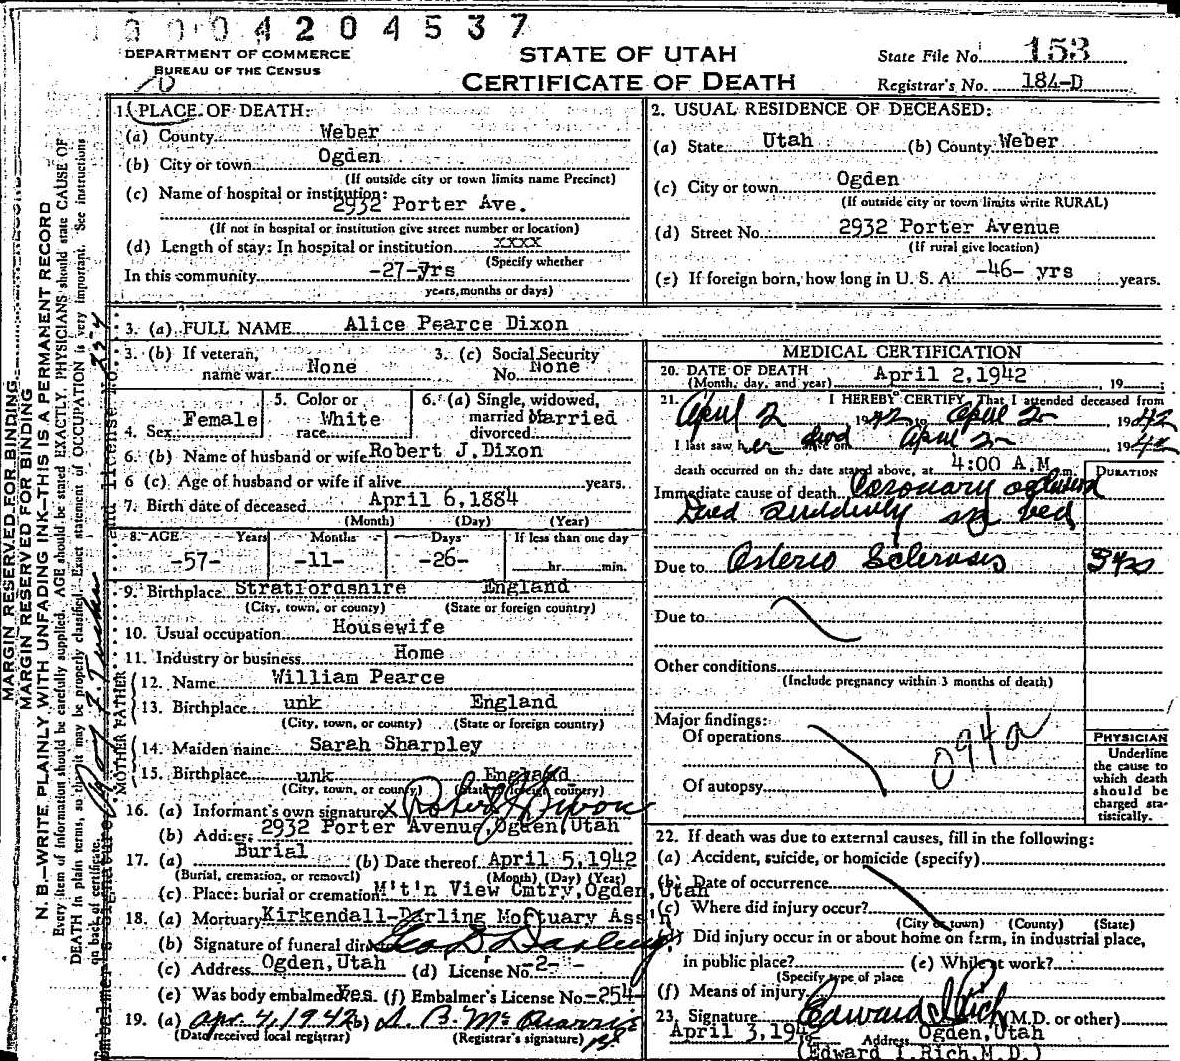 3004204537
DEPARTMENT OF COMMERCE
BUREAU OF THE CENSUS
STATE OF UTAH
CERTIFICATE OF DEATH
State File No. 153
Registrar's No. 184-D
1. PLACE OF DEATH:
(a) County Weber
(b) City or town Ogden
(If outside city or town limits name Precinct)
(c) Name of hospital or institution:
2932 Porter Ave.
(If not in hospital or institution give street number or location)
(d) Length of stay: In hospital or institution xxxx
(Specify whether
In this community -27-yrs
years, months or days)
2. USUAL RESIDENCE OF DECEASED:
(a) State Utah (b) County Weber
(c) City or town Ogden
(If outside city or town limits write RURAL)
(d) Street No. 2932 Porter Avenue
(If rural give location)
(e) If foreign born, how long in U. S. A. -46- yrs years.
3. (a) FULL NAME Alice Pearce Dixon
3. (b) If veteran, name war None
3. (c) Social Security No. None
4. Sex Female
5. Color or race White
6. (a) Single, widowed, married divorced Married
6. (b) Name of husband or wife Robert J. Dixon
6 (c). Age of husband or wife if alive years.
7. Birth date of deceased April 6, 1884
(Month) (Day) (Year)
8. AGE Years Months Days If less than one day
-57- -11- -26- hr. min.
9. Birthplace Straffordshire England
(City, town, or county) (State or foreign country)
10. Usual occupation Housewife
11. Industry or business Home
FATHER
12. Name William Pearce
13. Birthplace unk England
(City, town, or county) (State or foreign country)
MOTHER
14. Maiden name Sarah Sharpley
15. Birthplace unk England
(City, town, or county) (State or foreign country)
16. (a) Informant's own signature x Robert J Dixon
(b) Address 2932 Porter Avenue, Ogden, Utah
17. (a) Burial (b) Date thereof April 5, 1942
(Burial, cremation, or removal) (Month) (Day) (Year)
(c) Place: burial or cremation M't'n View Cmtry, Ogden, Utah
18. (a) Mortuary Kirkendall-Darling Mortuary Ass'n
(b) Signature of funeral director Geo D Darling
(c) Address Ogden, Utah (d) License No. -2-
(e) Was body embalmed Yes. (f) Embalmer's License No. -254-
19. (a) Apr. 4, 1942 (b)
(Date received local registrar) (Registrar's signature)
MEDICAL CERTIFICATION
20. DATE OF DEATH
(Month, day, and year) April 2, 1942, 19
21. I HEREBY CERTIFY, That I attended deceased from
April 2 1942 to April 2- 1942
I last saw her dead April 2- 1942
death occurred on the date stated above, at 4:00 A.M m.
DURATION
Immediate cause of death Coronary
Died suddenly in bed
Due to Osterio Sclerosis 5 yrs
Due to
Other conditions
(Include pregnancy within 3 months of death)
Major findings:
Of operations
094a
Of autopsy
PHYSICIAN
Underline
the cause to
which death
should be
charged sta-
tistically.
22. If death was due to external causes, fill in the following:
(a) Accident, suicide, or homicide (specify)
(b) Date of occurrence
(c) Where did injury occur?
(City or town) (County) (State)
(d) Did injury occur in or about home on farm, in industrial place,
in public place? (e) While at work?
(Specify type of place
(f) Means of injury
23. Signature Edward I Rich (M.D. or other)
April 3, 1942 Address Ogden, Utah
(Edward I. Rich, M.D.)
MARGIN RESERVED FOR BINDING
MARGIN RESERVED FOR BINDING
N. B.—WRITE PLAINLY WITH UNFADING INK—THIS IS A PERMANENT RECORD
Every item of information should be carefully supplied. AGE should be stated EXACTLY. PHYSICIANS should state CAUSE OF
DEATH in plain terms, so that it may be properly classified. Exact statement of OCCUPATION is very important. See instructions
on back of certificate.
Embalmer's signature and license No.